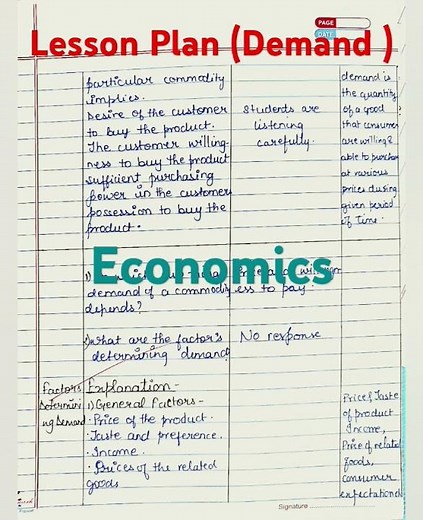 PAGE
DATE
Lesson Plan (Demand )
particular commodity
implies.
Desire of the customer
to buy the product.
The customer willing-
ness to buy the product
sufficient purchasing
power in the customers
possession to buy the
product.
Students are
listening
carefully.
demand is
the quantity
of a good
that consumer
are willing &
able to purchase
at various
prices during
given period
of Time.
Economics
demand of a commodity
depends?
ess to pay
2) what are the factor's
determining demand?
No response
Factors
Determini
ng Demand
Explanation -
1) General Factors -
• Price of the product.
• Taste and preference.
• Income.
• Prices of the related
goods
Price & Taste
of product
Income,
Price of related
goods,
consumer
expectations
Signature